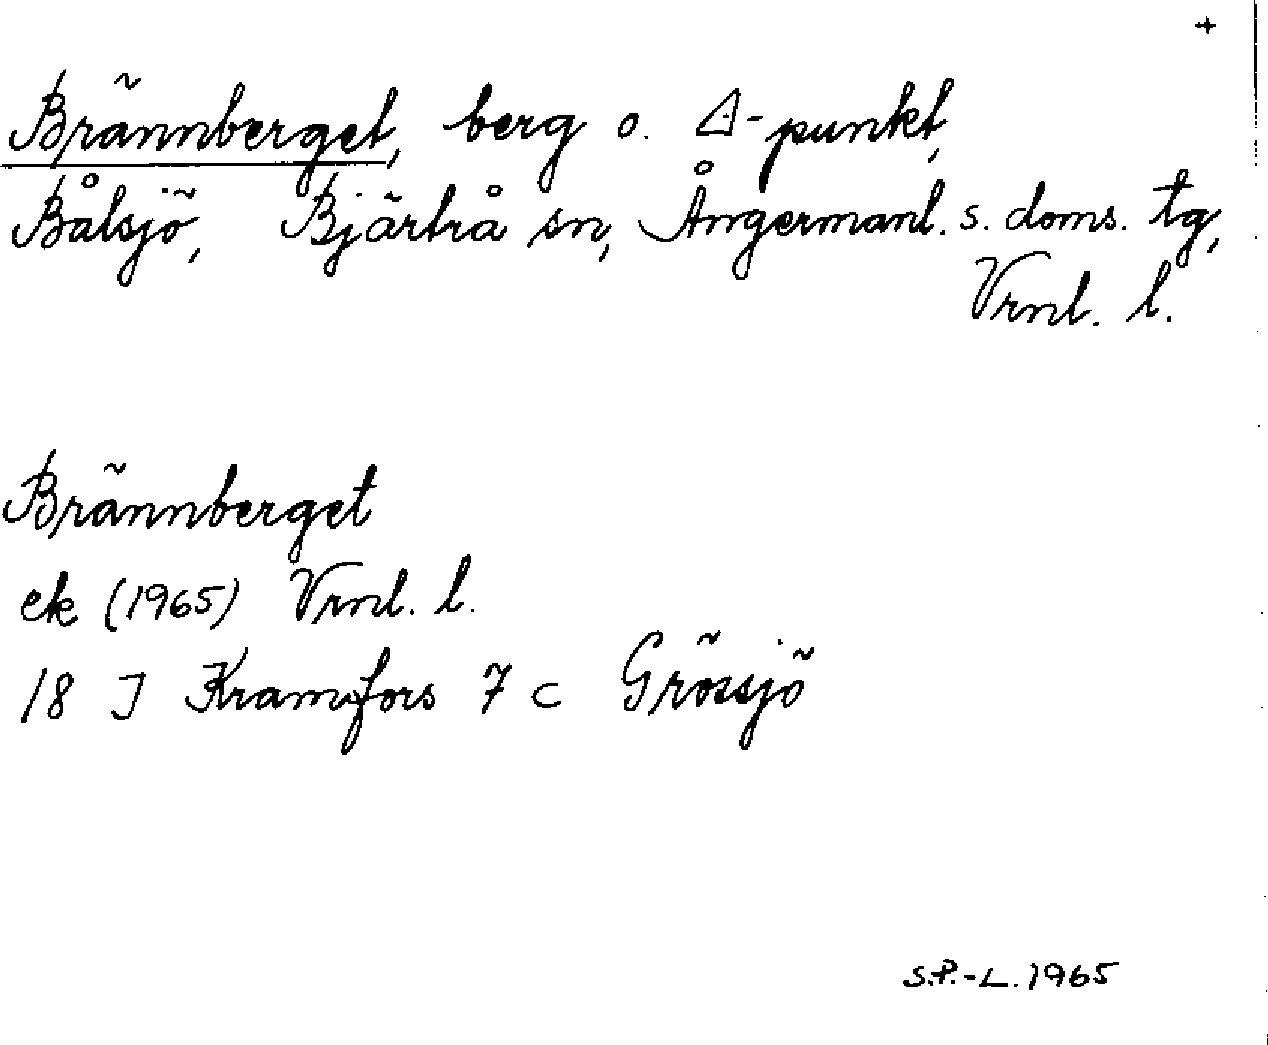 +
Brännberget, berg o. △-punkt,
Bålsjö, Bjärtrå sn, Ångermanl. s. doms. tg,
Vrnl. l.
Brännberget
ek (1965) Vrnl. l.
18 J Kramfors 7 c Grössjö
S.P.-L. 1965